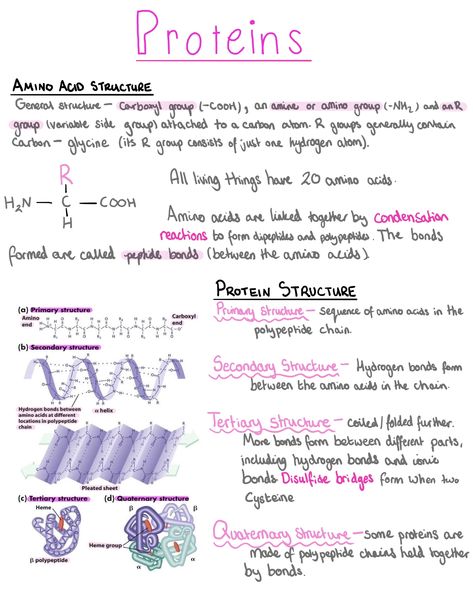 Proteins
AMINO ACID STRUCTURE
General structure – Carboxyl group (-COOH), an amine or amino group (-NH₂) and an R
group (variable side group) attached to a carbon atom. R groups generally contain
Carbon – glycine (its R group consists of just one hydrogen atom).
R
H₂N — C — COOH
H
All living things have 20 amino acids.
Amino acids are linked together by condensation
reactions to form dipeptides and polypeptides. The bonds
formed are called peptide bonds (between the amino acids)
PROTEIN STRUCTURE
Primary Structure – Sequence of amino acids in the
polypeptide chain.
Secondary Structure – Hydrogen bonds form
between the amino acids in the chain.
Tertiary Structure – coiled/folded further.
More bonds form between different parts,
including hydrogen bonds and ionic
bonds Disulfide bridges form when two
Cysteine
Quaternary Structure – Some proteins are
made of polypeptide chains held together
by bonds.
(a) Primary structure
Amino
end
Carboxyl
end
(b) Secondary structure
Hydrogen bonds between
amino acids at different
locations in polypeptide
chain
α helix
Pleated sheet
(c) Tertiary structure
Heme
β polypeptide
(d) Quaternary structure
β
β
Heme group
α
α